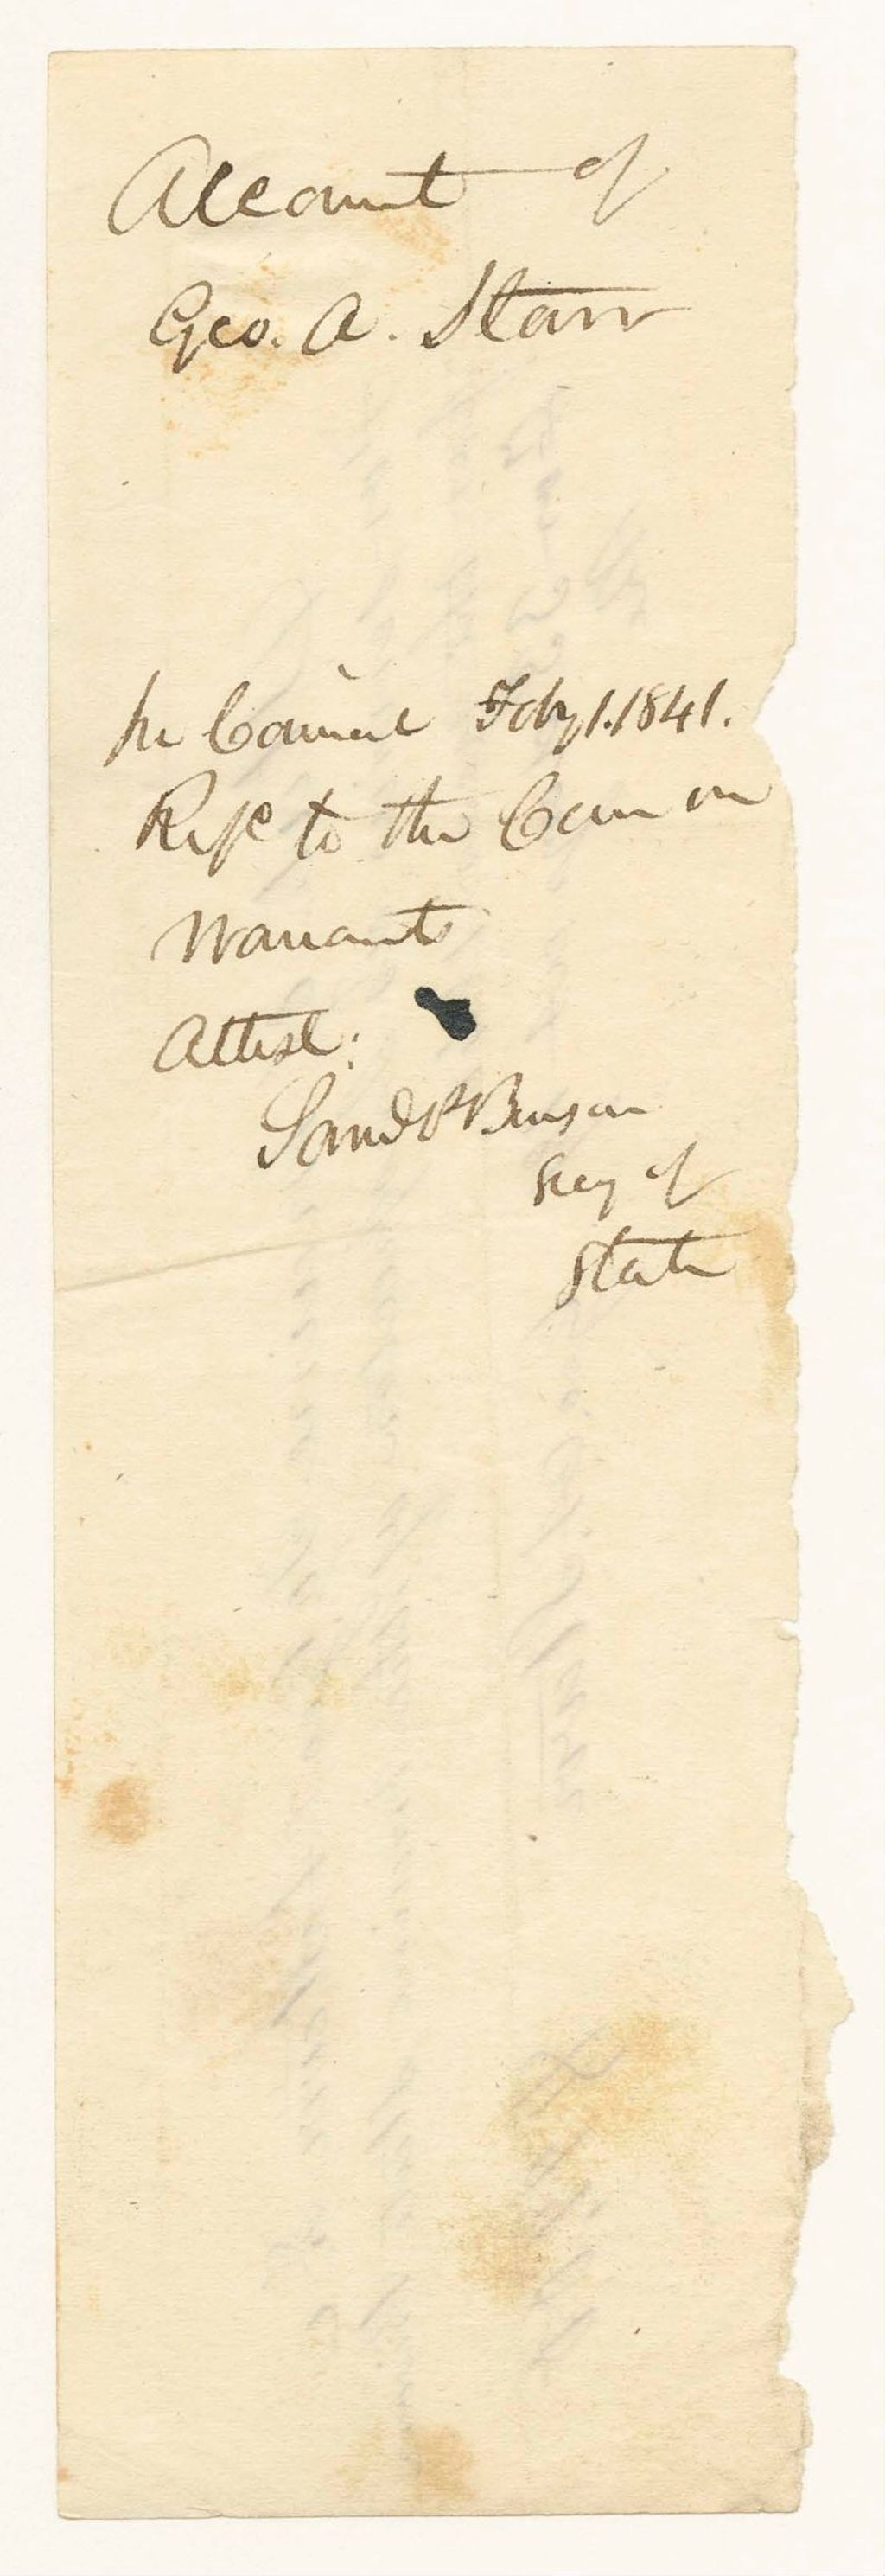 Account of
Geo. A. Starr
In Council Feby 1. 1841.
to the Com on
Warrants
Attest:
Saml P Benson
Secy of
State